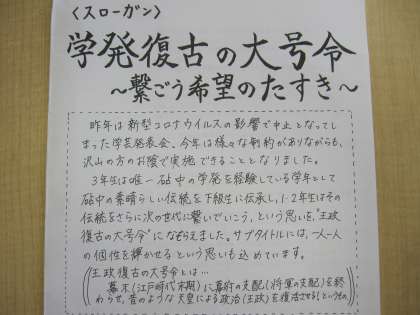 〈スローガン〉
学発復古の大号令
～繋ごう希望のたすき～
昨年は新型コロナウイルスの影響で中止となってし
まった学芸発表会、今年は様々な制約がありながらも、
沢山の方のお陰で実施できることとなりました。
3年生は唯一砧中の学発を経験している学年として
砧中の素晴らしい伝統を下級生に伝承し、1・2年生はその
伝統をさらに次の世代に繋いでいこう、という思いを、"王政
復古の大号令"になぞらえました。サブタイトルには、一人一人
の個性を輝かせるという思いも込めています。
(王政復古の大号令とは…
幕末(江戸時代末期)に幕府の支配(将軍の支配)を終
わらせ、昔のような天皇による政治(王政)を復活させる!というもの)